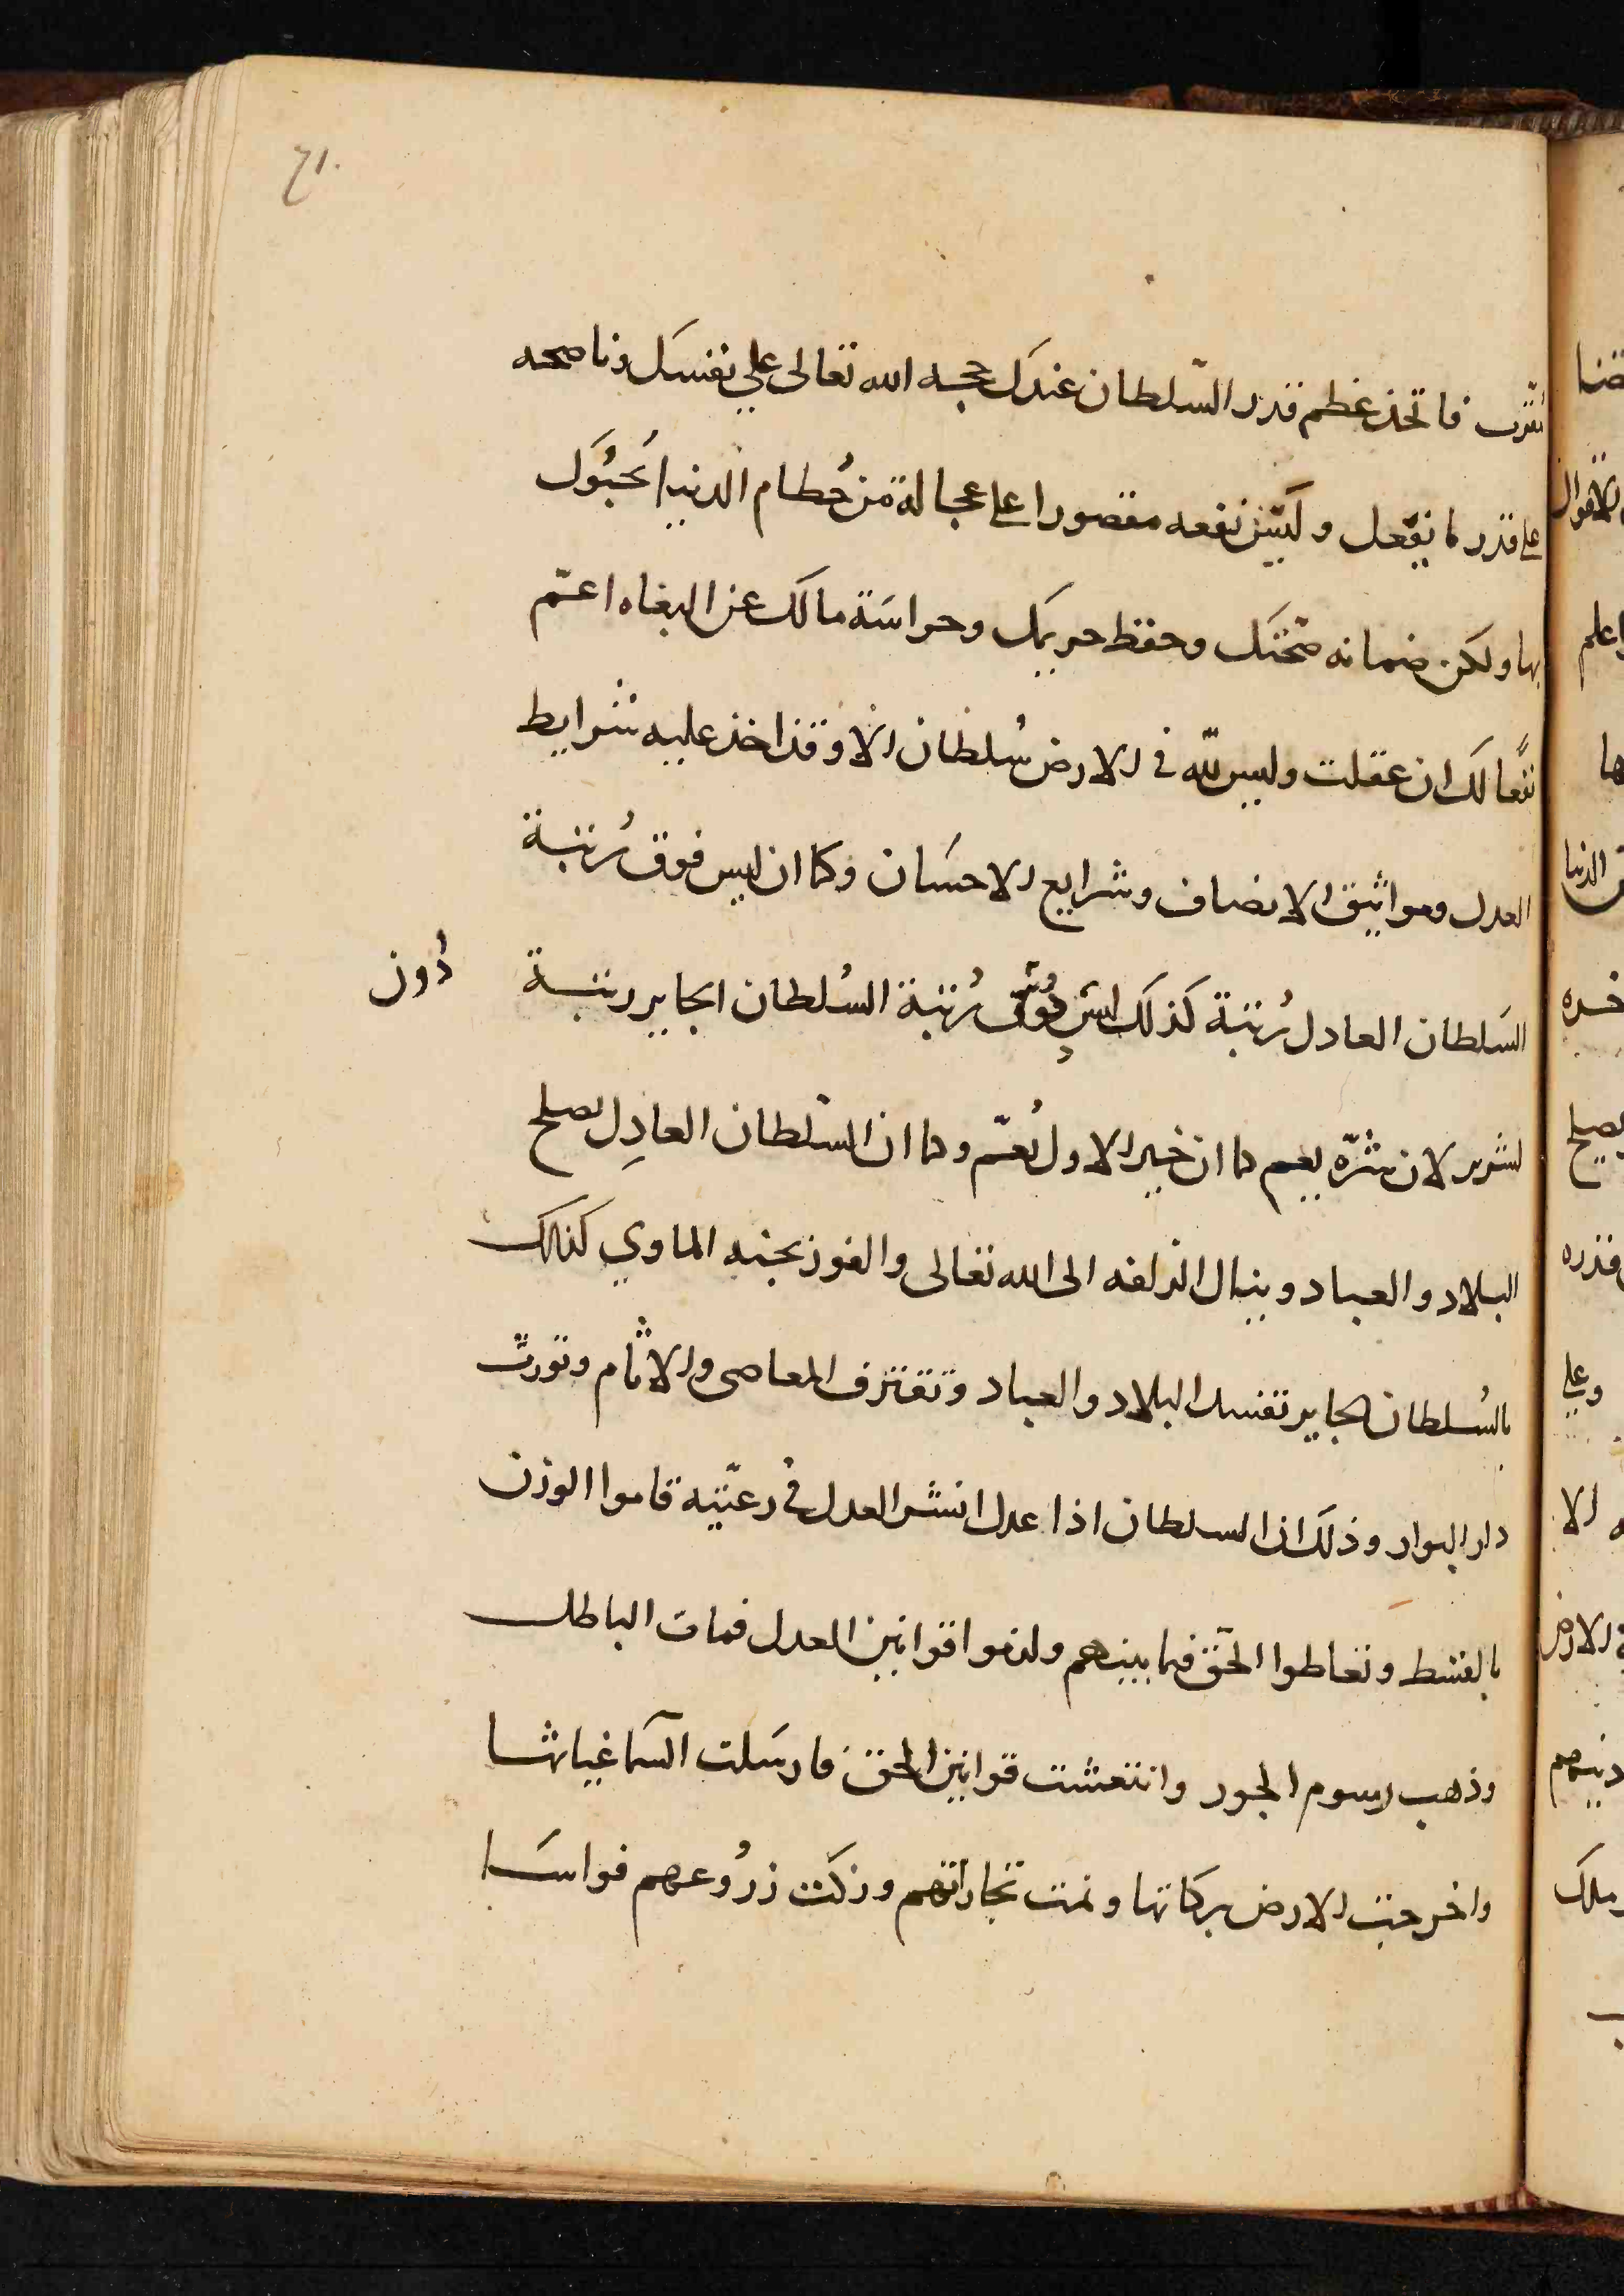 ٦١٠
تقرب فاتخذ عظم قدر السّلطان عندك حجه الله تعالى علي نفسك وناصحه
على قدر ما نفعك وليس نفعه مقصورا على عجالة من حُطام الدنيا يَحبُوك
بها ولكن ضمانه مهجتك وحفظ حريمك وحراسَة مالك عن البغاه اعمّ
نفعًا لك ان عقلت وليس للّه في الارض سُلطان الا وقد اخذ عليه شرايط
العدل ومواثيق الانصاف وشرايع الاحسَان وكما ان ليس فوق رُتبة
السَلطان العادل رُتبة كذلك ليسَ رُتبة السُلطان الجاير رتبة
دُون
لشرير لان شرّه يعم كما ان خير الاول يُعمّ وكما ان السّلطان العادِل تصلح
البلاد والعباد وينال الزلفه الى الله تعالى والفوز بجنه الماوي كذلك
بالسُلطان الجاير تفسد البلاد والعباد وتقترف المعاصى والاثام وتورث
دار البوار وذلك ان السلطان اذا عدل انتشر العدل في رعيّته قاموا الوزن
بالقسط وتعاطوا الحق فيما بينهم ولزموا قوانين العدل فمات الباطل
وذهب رسوم الجور وانتعشت قوانين الحق فارسَلت السّما غياثها
واخرجت الارض بركاتها ونمت تجاراتهم وزكت زرُوعهم فواسَا